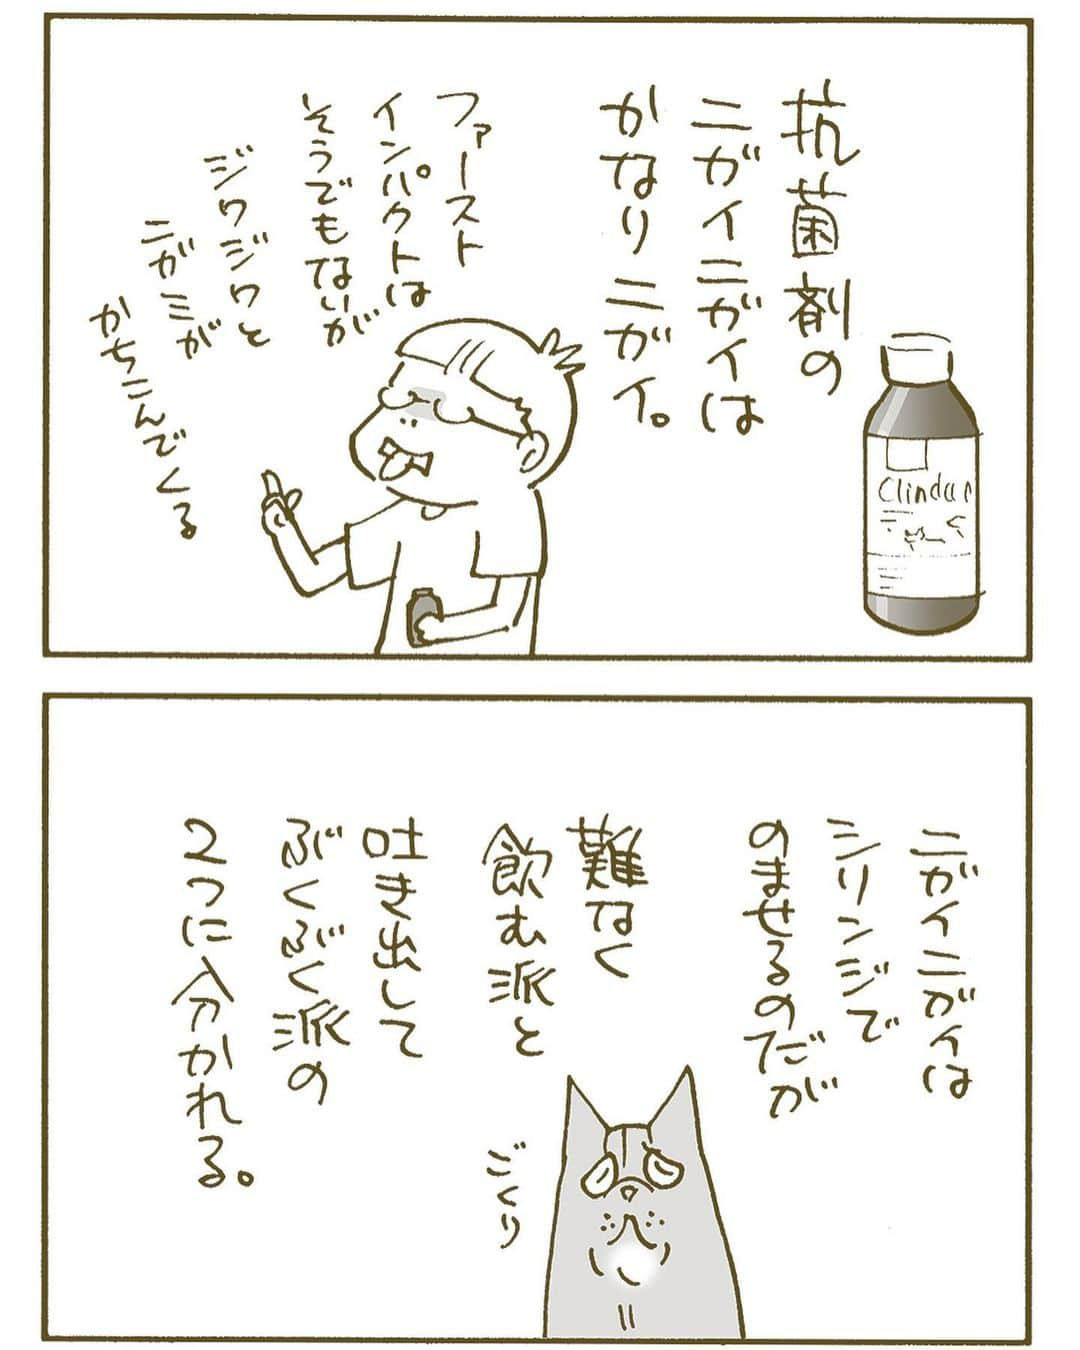 抗菌剤の
ニガイニガイは
かなりニガイ。
Clinda
ファースト
インパクトは
そうでもないが
ジワジワと
ニガミが
かちこんでくる
ニガイニガイは
シリンジで
のませるのだが
難なく
飲む派と
吐き出して
ぶくぶく派の
2つに分かれる。
ごくり